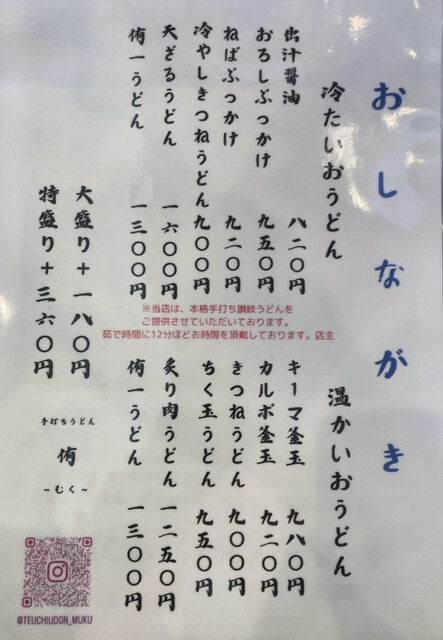 おしながき
冷たいおうどん
出汁醤油 八二〇円
おろしぶっかけ 九五〇円
ねばぶっかけ 九二〇円
冷やしきつねうどん 九〇〇円
天ざるうどん 一六〇〇円
侑一うどん 一三〇〇円
※当店は、本格手打ち讃岐うどんを
ご提供させていただいております。
茹で時間に12分ほどお時間を頂戴しております。店主
温かいおうどん
キーマ釜玉 九八〇円
カルボ釜玉 九二〇円
きつねうどん 九〇〇円
ちく玉うどん 九五〇円
炙り肉うどん 一二五〇円
侑一うどん 一三〇〇円
大盛り+一八〇円
特盛り+三六〇円
手打ちうどん
侑
~むく~
@TEUCHIUDON_MUKU